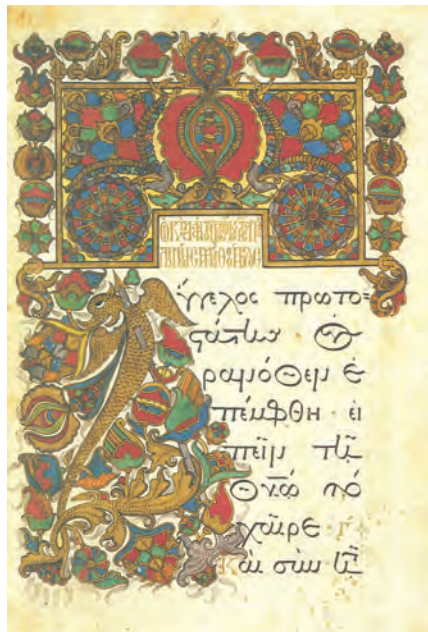 Ἄγγελος πρωτο=
στάτης οὐ
ρανόθεν ἐ
πέμφθη εἰ
πεῖν τῇ
Θκῶ τὸ
χαῖρε
Καὶ σὺν τῇ